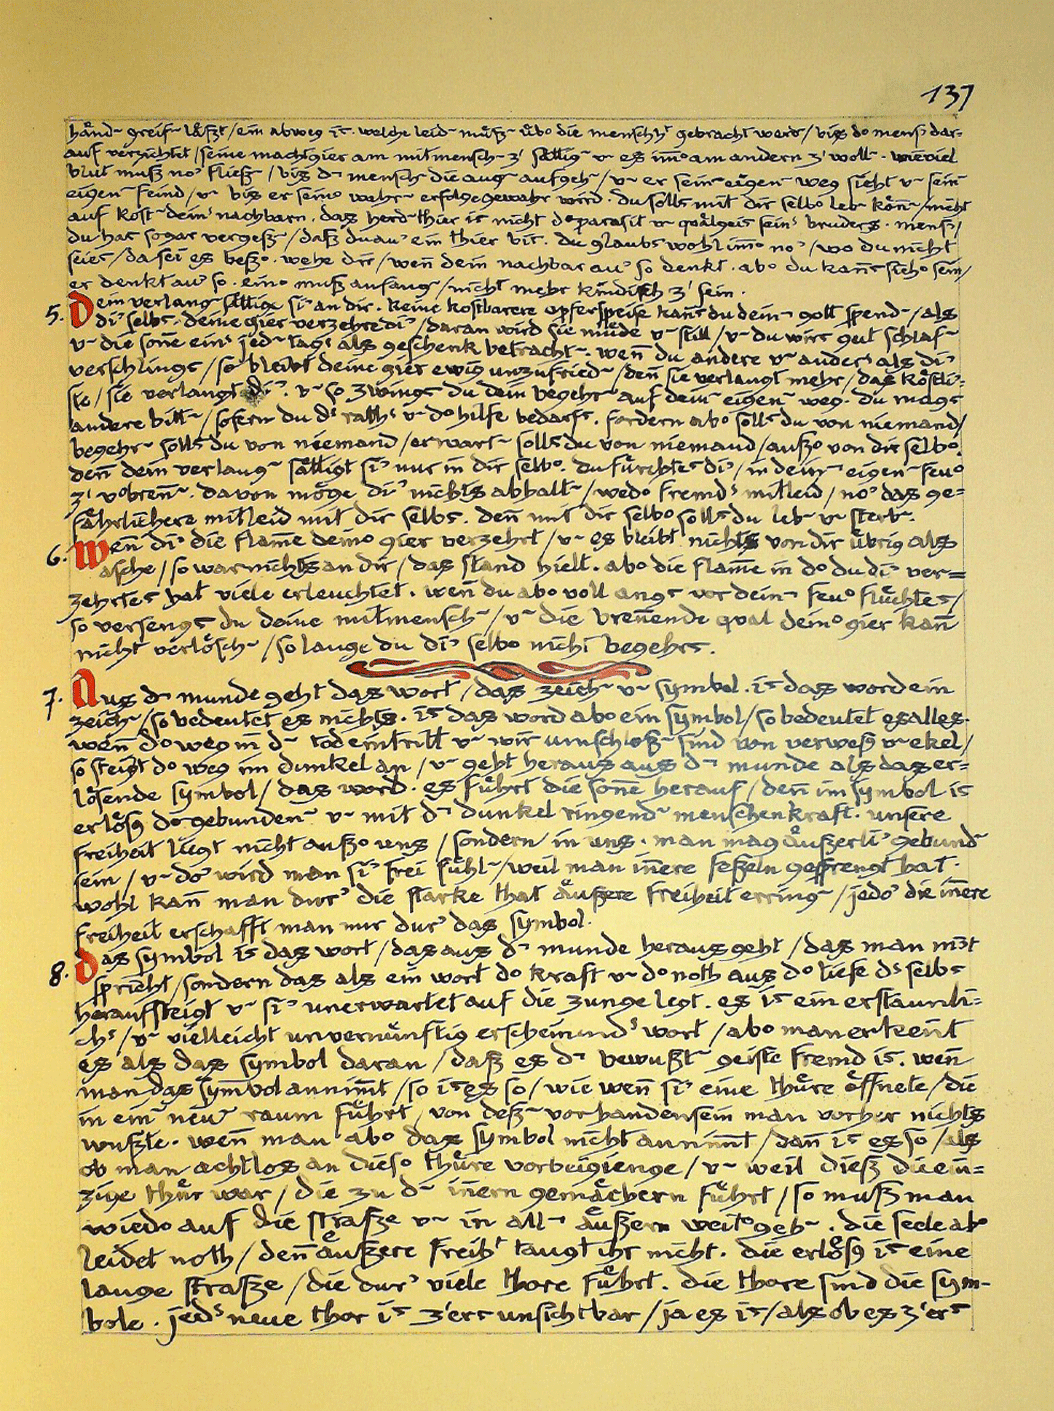 137
händ- greif- läßt / ein abweg is. welche leid- müß- üb° die mensch<sup>ht</sup> gebracht werd- / bis d° mensch dar-
auf verzichtet / seine machtgier am mitmensch- z' sättig- u- es im° am andern z' woll-. wieviel
blut muß no' fließ- / bis d- mensch- die aug- aufgeh- / u- er sein- eigen- weg sieht u- sein-
eigen- feind / u- bis er sein° wahr- erfolge gewahr wird. du solls mit dir selb° leb- kön̄- / nicht
auf kost- deinˢ nachbarn. das herd-thier is nicht d° parasit u- quälgeis seinˢ bruders. mensch /
du has sogar vergeß- / daß du au' ein thier bis. du glaubs wohl im̄° no' / wo du nicht
seies / da sei es beß°. wehe dir / wen̄ dein nachbar au' so denkt. ab° du kan̄s sich° sein /
er denkt au' so. ein° muß anfang- / nicht mehr kindisch z' sein.
5. Dein verlang- sättige si' an dir. keine kostbarere opferspeise kan̄s du dein- gott spend- / als
di' selbs. deine gier verzehre di' / daran wird sie müde u- still / u- du wirs gut schlaf-
u- die son̄e einˢ jed- tagˢ als geschenk betracht-. wen̄ du andere u- anderˢ als di'
verschlings / so bleibt deine gier ewig unzufried- / den̄ sie verlangt mehr / das köstli'-
ste / sie verlangt di'. u- so zwings du dein begehr- auf dein- eigen- weg. du mags
andere bitt- / sofern du dˢ rathˢ u- d° hilfe bedarfs. fordern ab° solls du von niemand /
begehr- solls du von niemand / erwart- solls du von niemand / auß° von dir selb°.
den̄ dein verlang- sättigt si' nur in dir selb°. du fürchtes di' / in dein- eigen- feu°
z' v°bren̄-. davon möge di' nichts abhalt- / wed° fremdˢ mitleid / no' das ge=
fährlichere mitleid mit dir selbs. den̄ mit dir selb° solls du leb- u- sterb-.
6. Wen̄ di' die flam̄e dein° gier verzehrt / u- es bleibt nichts von dir übrig als
asche / so war nichts an dir / das stand hielt. ab° die flam̄e in d° du di' ver-=
zehrtes hat viele erleuchtet. wen̄ du ab° voll angs vor dein- feu° flüchtes /
so versengs du deine mitmensch- / u- die bren̄ende qual dein° gier kan̄
nicht verlösch- / so lange du di' selb° nicht begehrs.
7. Aus d- munde geht das wort / das zeich- u- symbol. is das word ein
zeich- / so bedeutet es nichts. is das word ab° ein symbol / so bedeutet es alles.
wen̄ d° weg in d- tod eintritt u- wir umschloß- sind von verwesᵍ u- ekel /
so steigt d° weg im dunkel an / u- geht heraus aus d- munde als das er-=
lösende symbol / das word. es führt die son̄e herauf / den̄ im symbol is
erlösᵍ d° gebunden- u- mit d- dunkel ringend- menschenkraft. unsere
freiheit liegt nicht auß° uns / sondern in uns. man mag äußerli' gebund-
sein / u- do' wird man si' frei fühl- / weil man in̄ere feßeln gesprengt hat.
wohl kan̄ man dur' die starke that äußere freiheit erring- / jedo' die in̄ere
freiheit erschafft man nur dur' das symbol.
8. Das symbol is das wort / das aus d- munde heraus geht / das man nicht
spricht / sondern das als ein wort d° kraft u- d° noth aus d° tiefe dˢ selbs
heraufsteigt u- si' unerwartet auf die zunge legt. es is ein erstaunli-
chˢ / u- vielleicht unvernünftig erscheinendˢ wort / ab° man erken̄t
es als das symbol daran / daß es d- bewußt- geiste fremd is. wen̄
man das symbol annim̄t / so is es so / wie wen̄ si' eine thüre öffnete / die
in ein- neu- raum führt / von deß- vorhandensein man vorher nichts
wußte. wen̄ man ab° das symbol nicht annim̄t / dan̄ is es so / als
ob man achtlos an dies° thüre vorbeigienge / u- weil dieß die ein-=
zige thür war / die zu d- in̄ern gemächern führt / so muß man
wied° auf die straße u- in all- äußern weit°geh-. die seele ab°
leidet noth / den̄ äußere freihᵗ taugt ihr nicht. die erlösᵍ is eine
lange straße / die dur' viele thore führt. die thore sind die sym-
bole. jedˢ neue thor is z'ers unsichtbar / ja es is / als ob es z'ers